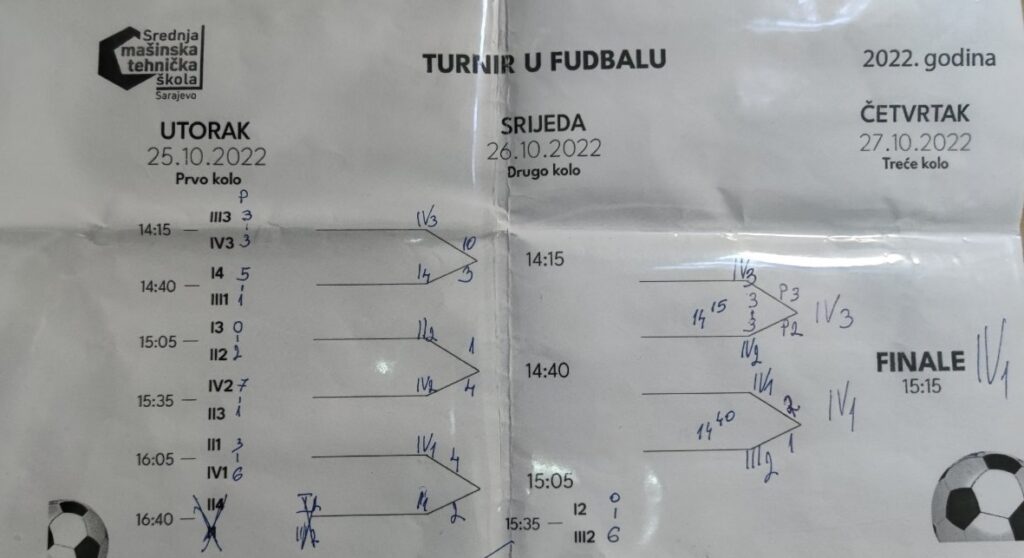 Srednja
mašinska
tehnička
škola
Sarajevo
TURNIR U FUDBALU
2022. godina
UTORAK
25.10.2022
Prvo kolo
SRIJEDA
26.10.2022
Drugo kolo
ČETVRTAK
27.10.2022
Treće kolo
P
14:15 III3 3
IV3 3
IV3 10
I4 3
14:40 I4 5
III1 1
15:05 I3 0
II2 2
II2 1
IV2 4
15:35 IV2 7
II3 1
16:05 II1 3
IV1 6
IV1 4
2
16:40 II4
14:15
14:40
15:05
15:35 I2 0
III2 6
IV3 3 P3
14 15
IV2 3 P2
IV3
IV1 2
14 40
III2 1
IV1
FINALE IV1
15:15